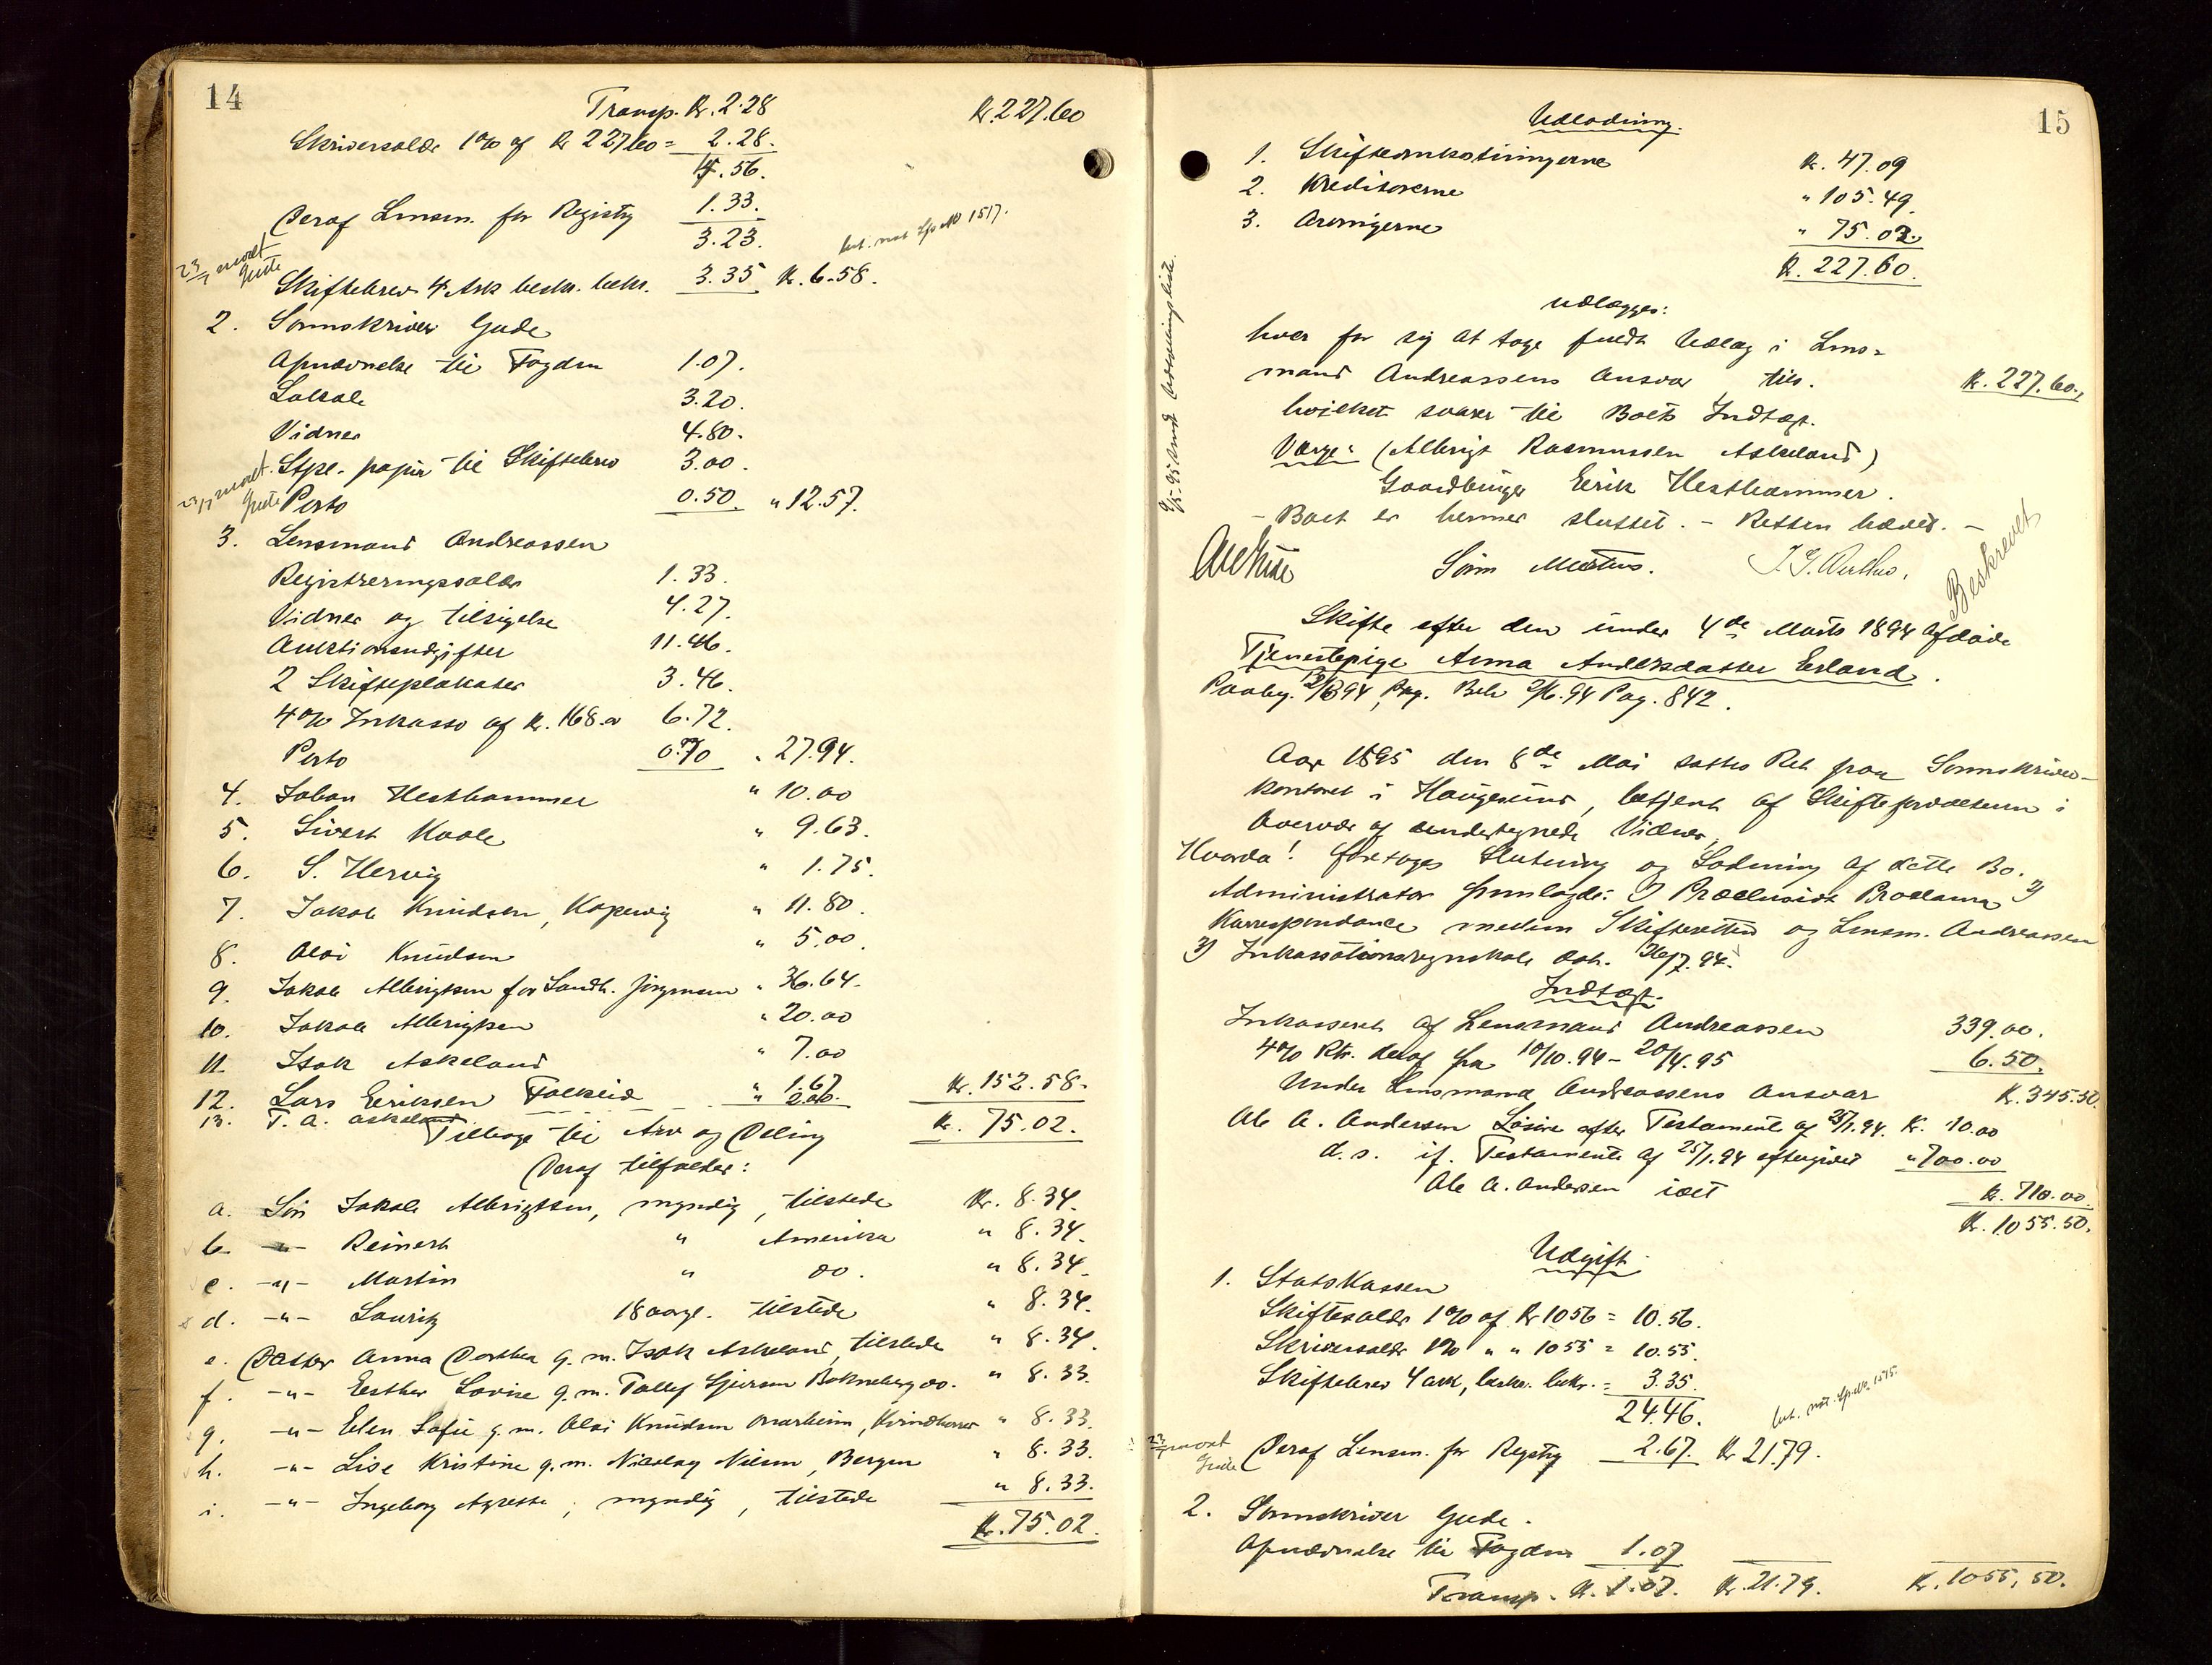 14
Transp. Kr. 2.28 Kr. 227.60
Skriversalær 1% af Kr 227.60 = 2.28.
4.56.
Deraf Lensm. for Registrg 1.33.
3.23.
Skiftebrev 4 Ark beskr. bekr. 3.35 Kr. 6.58.
2. Sorenskriver Gude
Opnævnelse til Fogden 1.07.
Lokale 3.20.
Vidner 4.80.
Stpl. papir til Skiftebrev 3.00.
Porto 0.50. " 12.57.
3. Lensmand Andreassen
Registreringssalær 1.33.
Vidner og tilsigelse 4.27.
Auktionsudgifter 11.46.
2 Skifteplakater 3.46.
4% Inkasso af Kr. 168.00 6.72.
Porto 0.70 " 27.94.
4. Johan Hesthammer " 10.00
5. Sivert Kvale " 9.63.
6. S. Hervig " 1.75.
7. Jakob Knudsen, Kopervig " 11.80.
8. Olai Knudsen " 5.00.
9. Jakob Albrigtsen for Landh. Jørgensen " 36.64.
10. Jakob Albrigtsen " 20.00
11. Isak Askeland " 7.00
12. Lars Eeriksen Falkeid " 1.67 Kr. 152.58.
13. T. A. Askeland " 2.00.
Tilbage til Arv og Deling Kr. 75.02.
Deraf tilfalder:
a. Søn Jakob Albrigtsen, myndig, tilstede Kr. 8.34.
b. -"- Reinert " Amerika " 8.34.
c. -"- Martin " do. " 8.34.
d. -"- Lauritz 18 aarg. tilstede " 8.34.
e. Datter Anna Dorthea g. m. Isak Askeland, tilstede " 8.34.
f. -"- Eesther Lovise g. m. Tollef Sjursen Bokneberg do. " 8.33.
g. -"- Elen Sofie g. m. Olai Knudsen " 8.33.
h. -"- Lise Kristine g. m. Nicolay Nilsen, Bergen " 8.33.
i. -"- Ingeborg Agrethe, myndig, tilstede " 8.33.
Kr. 75.02.
15
Udlodning:
1. Skifteomkostningerne Kr. 47.09
2. Kreditorerne " 105.49.
3. Arvingerne " 75.02.
Kr. 227.60.
Udlægges:
hver for sig at tage fuldt Udlæg i Lens-
mand Andreassens Ansvar til. Kr. 227.60.,
hvilket svarer til Boets Indtægt.
Værge: (Albrigt Rasmussen Askeland)
Gaardbruger Eerik Hesthammer.
- Boet er hermed sluttet. - Retten hævet. -
Beskrevet
Skifte efter den under 4de Marts 1894 afdøde
Tjenestepige Anna Andersdatter Eeland.
Aar 1895 den 8de Mai sattes Ret paa Sorenskriver-
kontoret i Haugesund, betjent af Skifteforvalteren i
Overvær af undertegnede Vidner,
Hvorda! foretoges Slutning og Lodning af dette Bo.
Administrator fremlagde: 1) Præclusivt Proclama 2)
Korrespondance mellem Skifteretten og Lensm. Andreassen
3) Inkassationsregnskab dat. 26/7.94.
Indtægt.
Inkasseret af Lensmand Andreassen 339.00.
4% Rtr. deraf fra 10/10.94 - 20/4.95 6.50.
Under Lensmand Andreassens Ansvar Kr. 345.50.
Ole A. Andersen Løsøre efter Testamente af 25/1.94. Kr. 10.00
d. s. if. Testamente af 25/1.94 eftergivet " 700.00
Ole A. Andersen ialt Kr. 710.00.
Kr. 1055.50.
Udgift.
1. Statskassen
Skiftesalær 1% af Kr 1056 = 10.56.
Skriversalær 1% " " 1055 = 10.55.
Skiftebrev 4 ark, beskr. bekr. = 3.35.
24.46.
Deraf Lensm. for Regstrg 2.67. Kr 21.79.
2. Sorenskriver Gude.
Opnævnelse til Fogden 1.07
Transp. Kr. 1.07. Kr. 21.79. Kr. 1055.50.